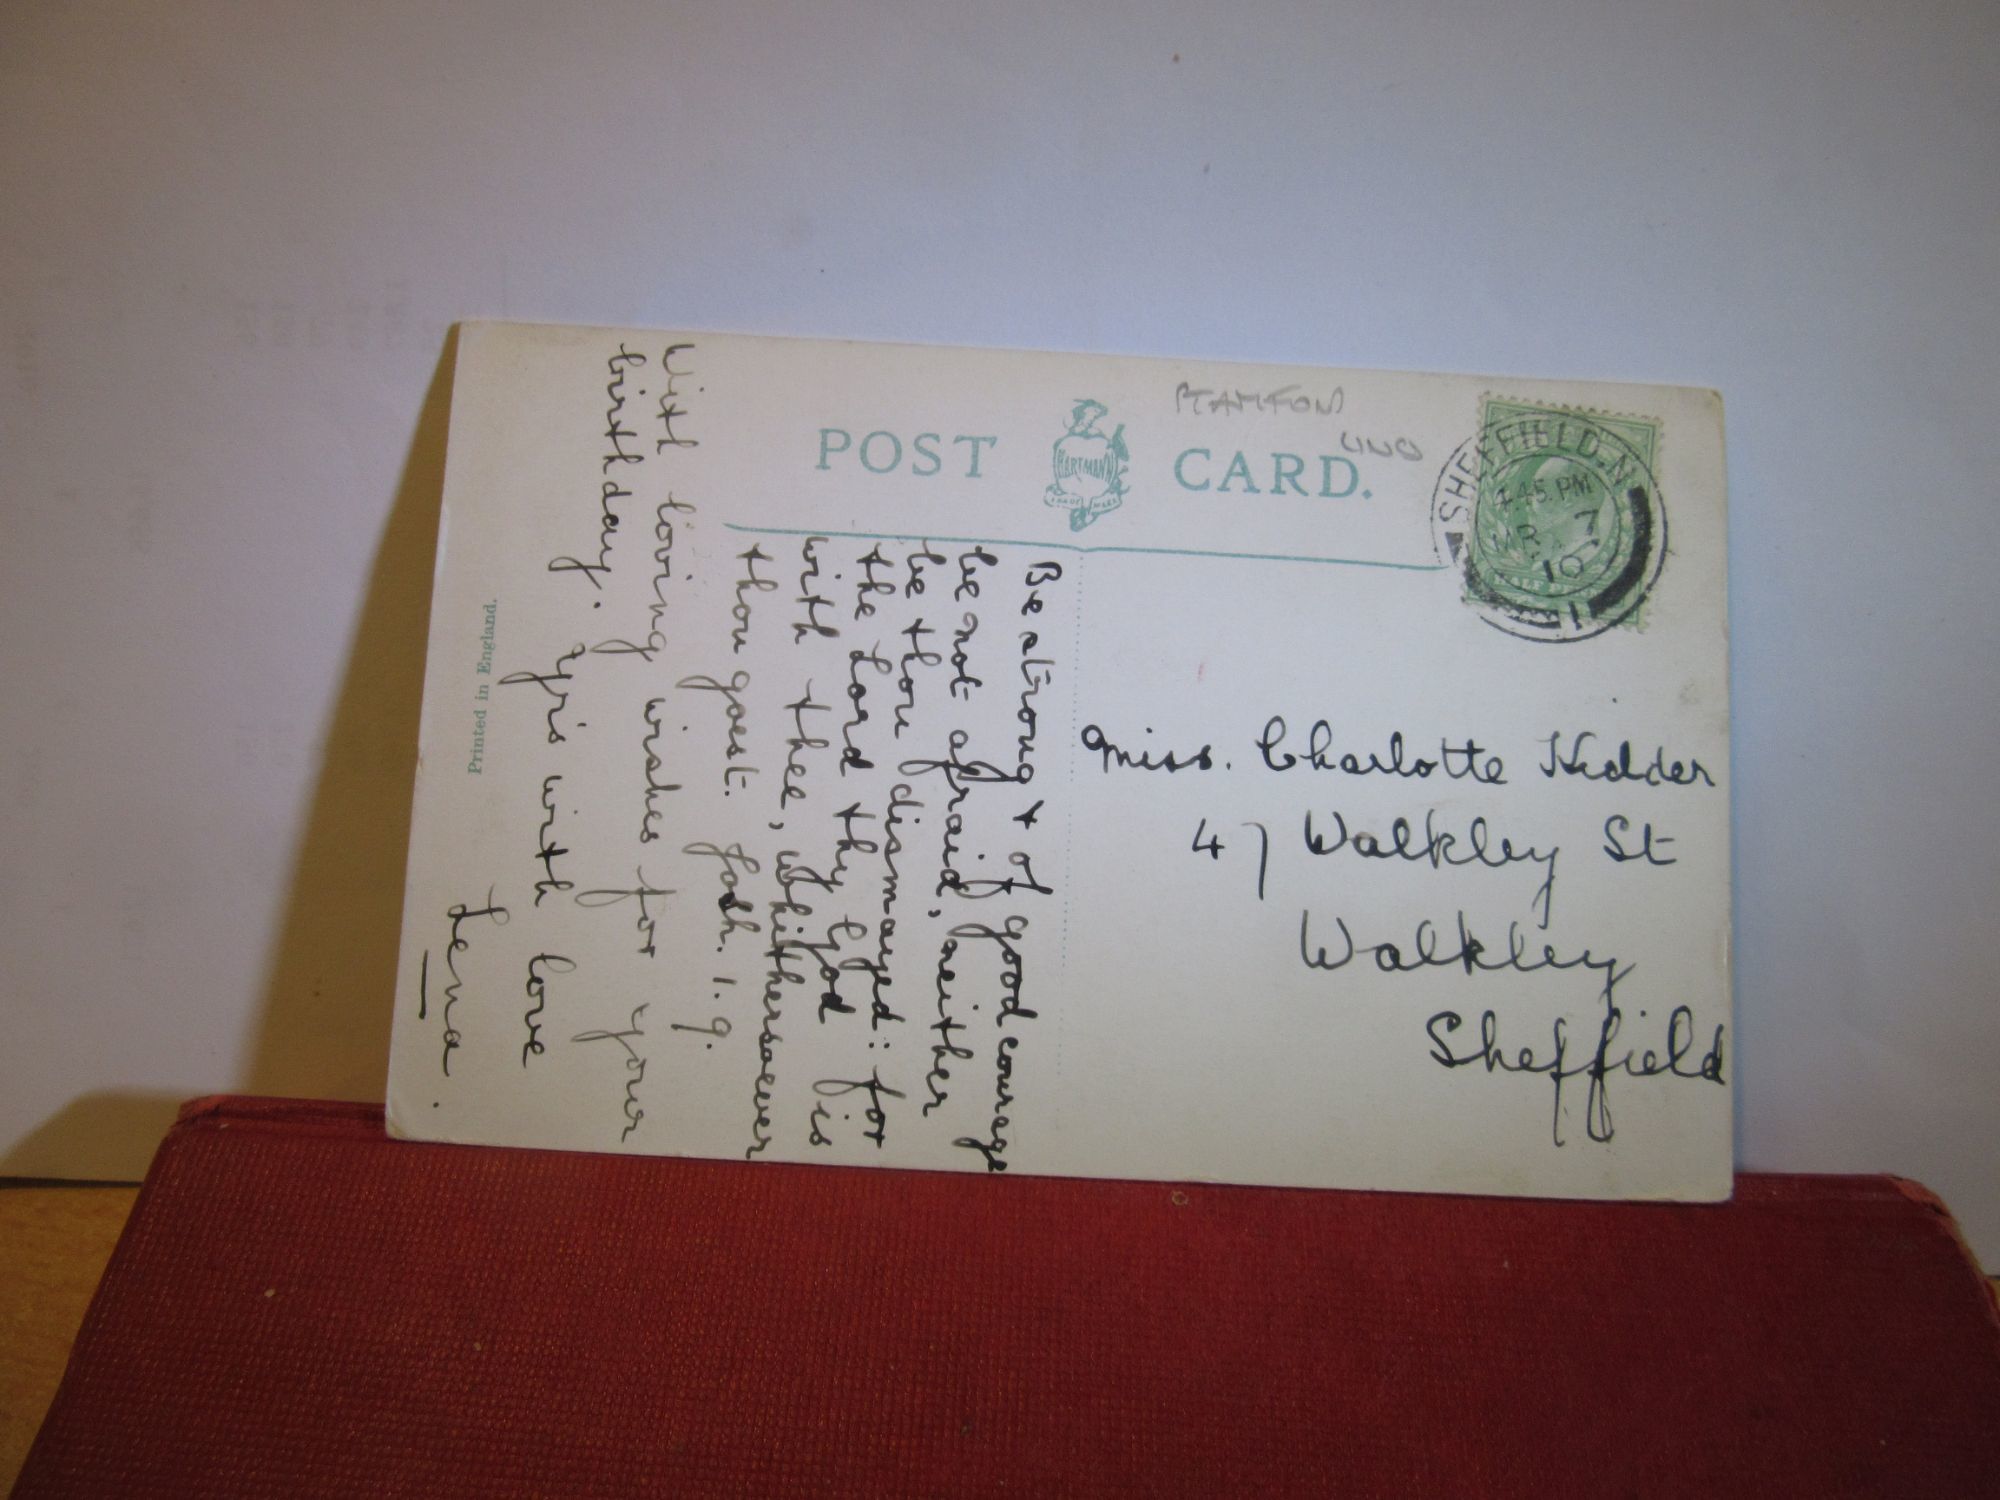 POST CARD.
HARTMANN
TRADE MARK
UNO
SHEFFIELD. N
4.45. PM
7
10
1
Be strong & of good courage
be not afraid, neither
be thou dismayed: for
the Lord thy God is
with thee, whithersoever
thou goest. Josh. 1. 9.
With loving wishes for your
birthday. Yrs with love
Lena.
Miss. Charlotte Kidder
47 Walkley St
Walkley
Sheffield
Printed in England.